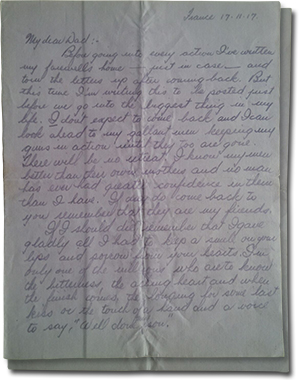 France 19.11.17.
My dear Dad:-
Before going into every action I've written
my farewells home - just in case - and
torn the letters up after coming back. But
this time I'm writing this to be posted just
before we go into the biggest thing in my
life. I don't expect to come back and I can
look ahead to my gallant men keeping my
guns in action until they too are gone.
There will be no retreat. I know my men
better than their own mothers and no man
has ever had greater confidence in them
than I have. If any do come back to
you remember that they are my friends.
If I should die remember that I gave
gladly all I had to keep a smile on your
lips and sorrow from your hearts. I'm
only one of the millions who are to know
the bitterness, the aching heart and when
the finish comes, the longing for some last
kiss or the touch of a hand and a voice
to say, "Well done, son."